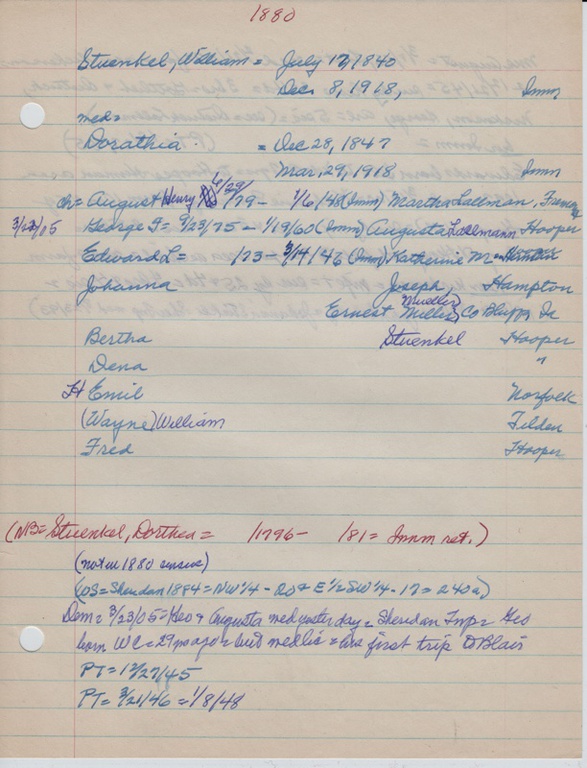 1880
Stuenkel, William = July 17, 1840
Dec. 8, 1918, Imm
med=
Dorathia = Dec 28, 1847
Mar, 29, 1918, Imm
ch= August Henry 6/29/79 - 1/6/48 (Imm) Martha Lallman,
3/23/05 George F= 9/23/75 - 1/19/60 (Imm) Augusta Lallmann Hooper
Edward L = /73 - 3/14/46 (Imm) Katherine M =
Johanna Joseph Hampton
Ernest Miller Mueller Co Bluffs, Ia
Bertha Stuenkel Hooper
Dena "
H Emil Norfolk
(Wayne) William Tilden
Fred Hooper
(NB= Stuenkel, Dorthea = /1796 - /81 = Immm ret.)
(not in 1880 census)
(OS= Sheridan 1884 = NW 1/4 - 20 & E 1/2 SW 1/4 - 17 = 240 a)
Dem= 3/23/05 = Geo & Augusta med yesterday = Sheridan Twp = Geo
born WC = 29 yrs ago = and med lic = his first trip to Blair
PT = 12/27/45
PT = 3/21/46 = 1/8/48